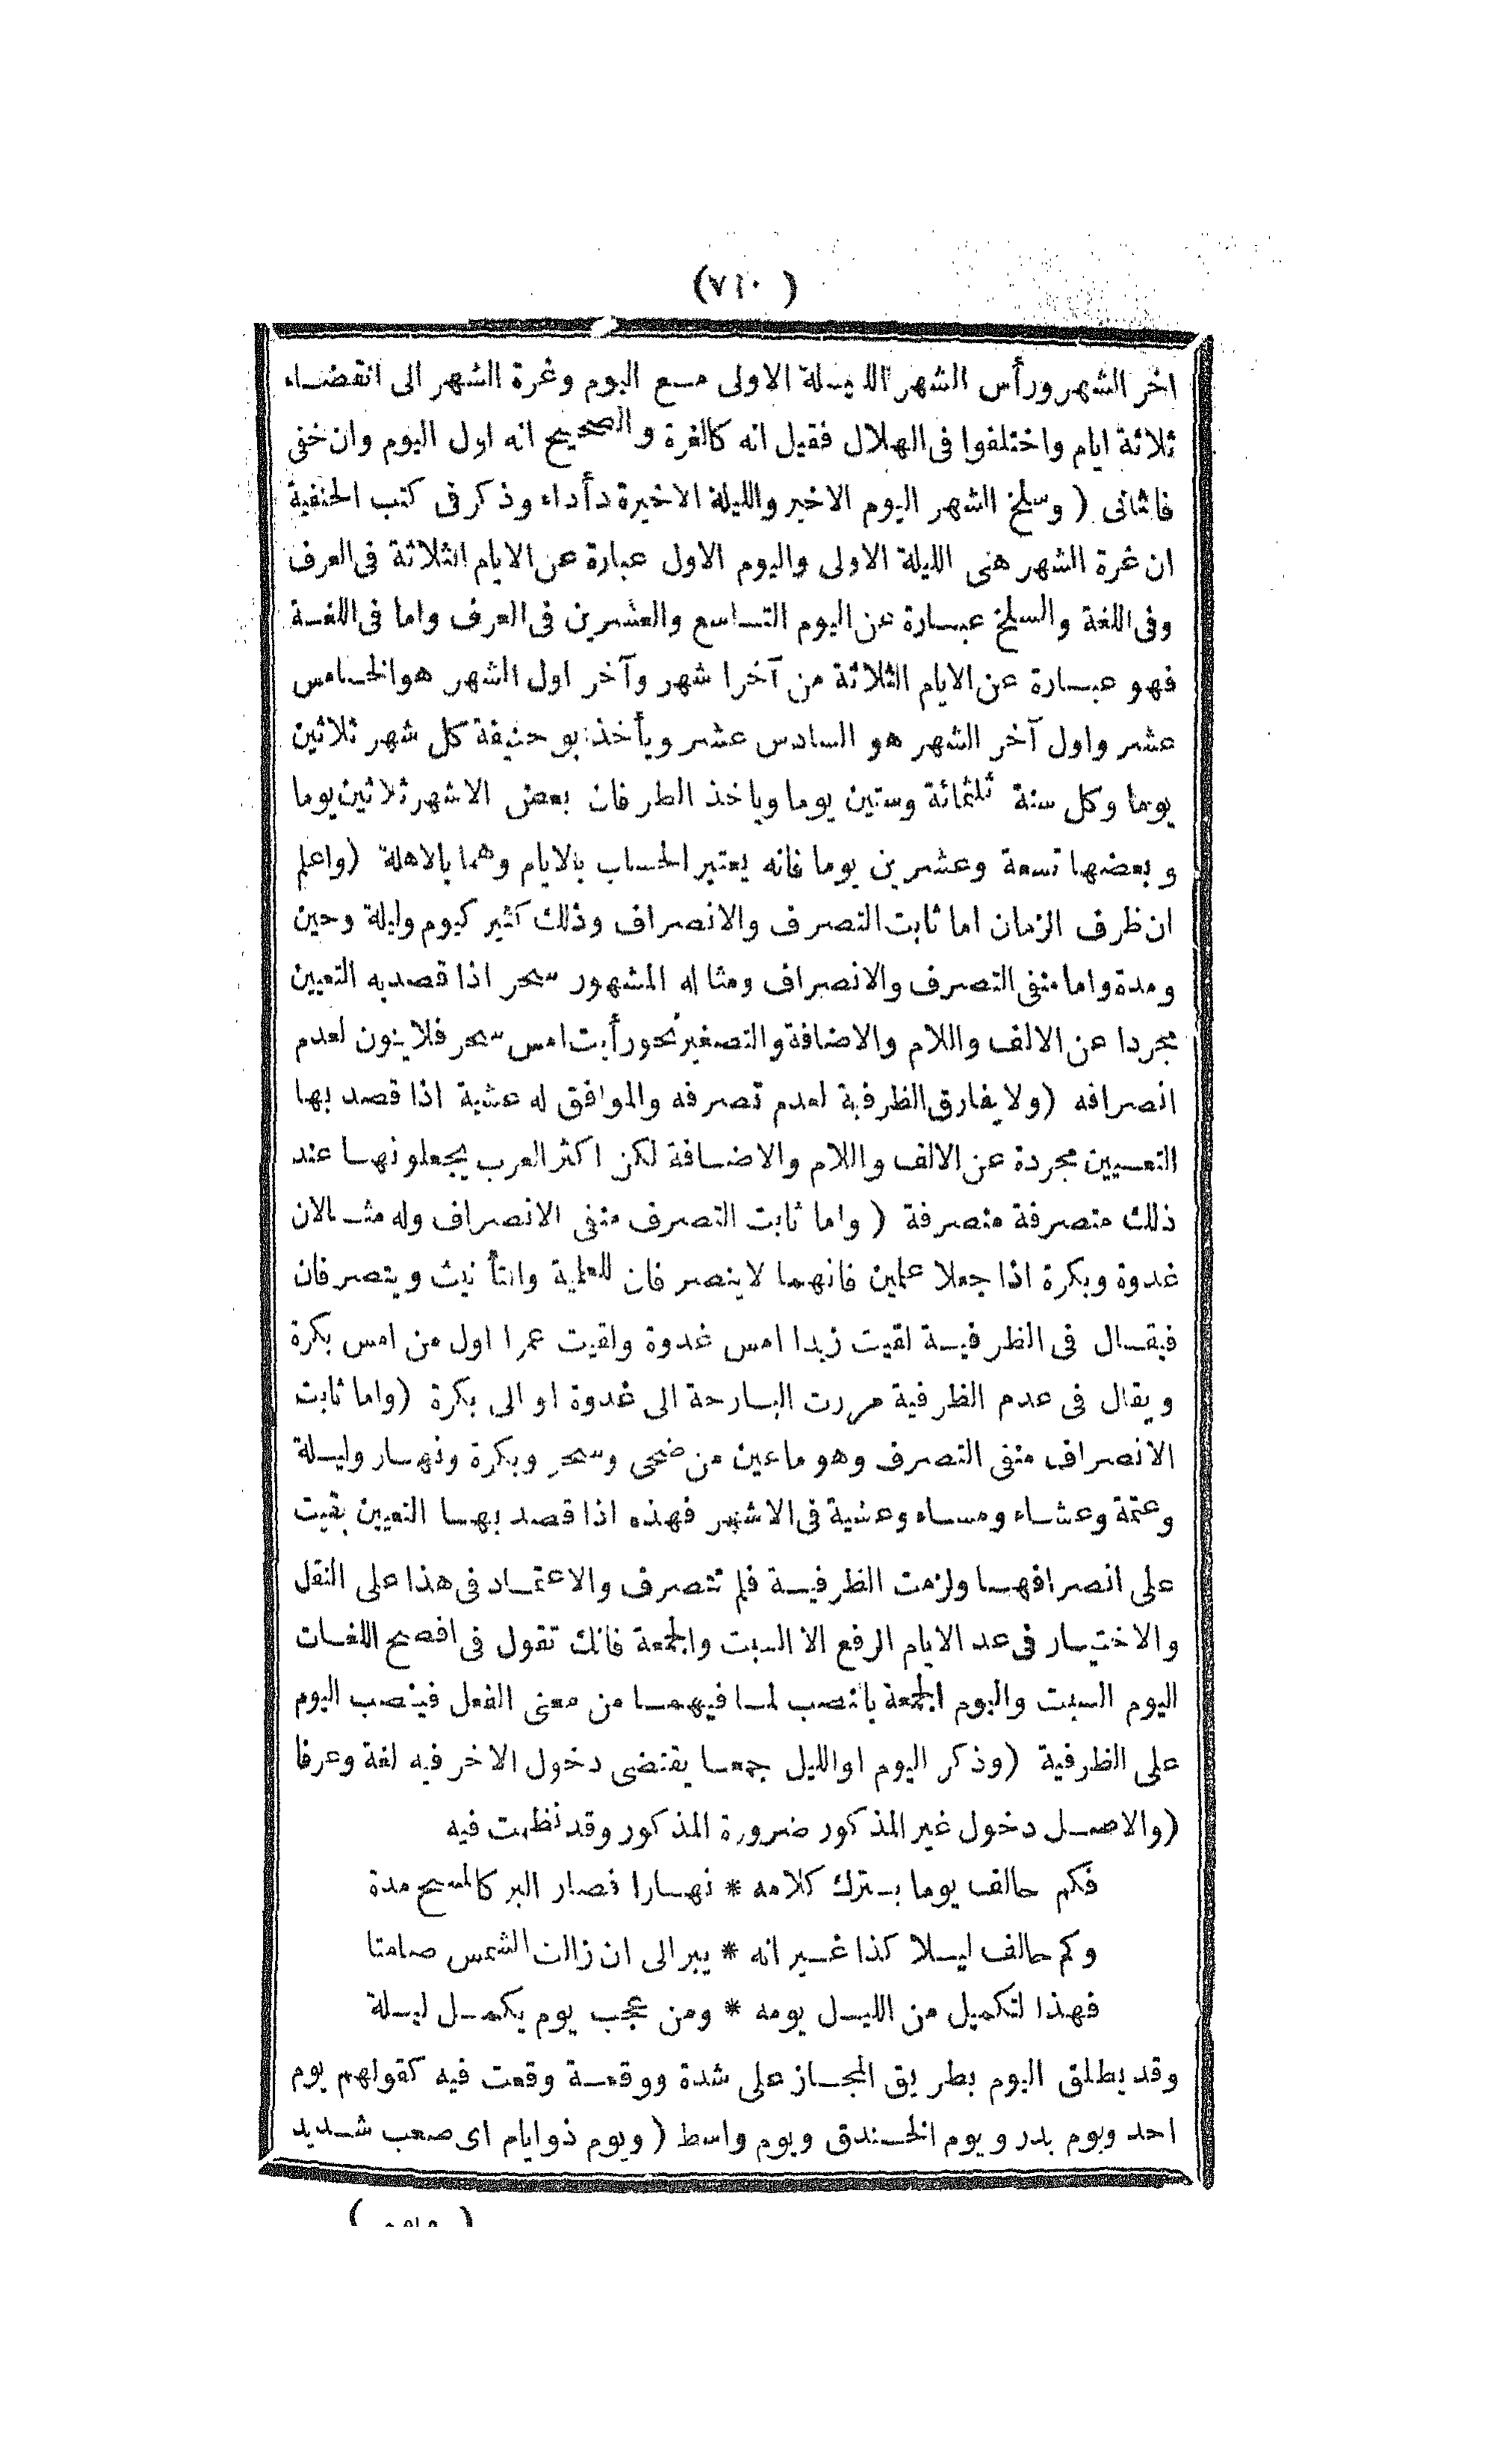 (٧١٠)
اخر الشهر ورأس الشهر الليلة الاولى مع اليوم وغرة الشهر الى انقضاء
ثلاثة ايام واختلفوا فى الهلال فقيل انه كالغرة والصحيح انه اول اليوم وان خفى
فالثانى (وسلخ الشهر اليوم الاخير والليلة الاخيرة دأداء وذكر فى كتب الحنفية
ان غرة الشهر هى الليلة الاولى واليوم الاول عبارة عن الايام الثلاثة فى العرف
وفى اللغة والسلخ عبارة عن اليوم التاسع والعشرين فى العرف واما فى اللغة
فهو عبارة عن الايام الثلاثة من آخرا شهر وآخر اول الشهر هو الخامس
عشر واول آخر الشهر هو السادس عشر ويأخذ ابو حنيفة كل شهر ثلاثين
يوما وكل سنة ثلثمائة وستين يوما وياخذ الطرفان بعض الاشهر ثلاثين يوما
وبعضها تسعة وعشرين يوما فانه يعتبر الحساب بالايام وهما بالاهلة (واعلم
ان ظرف الزمان اما ثابت التصرف والانصراف وذلك كثير كيوم وليلة وحين
ومدة واما منفى التصرف والانصراف ومثاله المشهور سحر اذا قصد به التعيين
مجردا عن الالف واللام والاضافة والتصغير نحو رأيت امس سحر فلا ينون لعدم
انصرافه (ولا يفارق الظرفية لعدم تصرفه والموافق له عشية اذا قصد بها
التعيين مجردة عن الالف واللام والاضافة لكن اكثر العرب يجعلونها عند
ذلك متصرفة منصرفة (واما ثابت التصرف منفى الانصراف وله مثالان
غدوة وبكرة اذا جعلا علمين فانهما لا ينصرفان للعلمية والتأنيث ويتصرفان
فيقال فى الظرفية لقيت زيدا امس غدوة ولقيت عمرا اول من امس بكرة
ويقال فى عدم الظرفية مررت البارحة الى غدوة او الى بكرة (واما ثابت
الانصراف منفى التصرف وهو ماعين من ضحى وسحر وبكرة ونهار وليلة
وعتمة وعشاء ومساء وعشية فى الاشهر فهذه اذا قصد بها التعيين بقيت
على انصرافها ولزمت الظرفية فلم تتصرف والاعتماد فى هذا على النقل
والاختيار فى عد الايام الرفع الا السبت والجمعة فانك تقول فى افصح اللغات
اليوم السبت واليوم الجمعة بالنصب لما فيهما من معنى الفعل فينصب اليوم
على الظرفية (وذكر اليوم او الليل جمعا يقتضى دخول الاخر فيه لغة وعرفا
(والاصل دخول غير المذكور ضرورة المذكور وقد نظمت فيه
فكم حالف يوما بترك كلامه * نهارا فصار البر كالمسح مدة
وكم حالف ليلا كذا غير انه * يبر الى ان زالت الشمس صامتا
فهذا لتكميل من الليل يومه * ومن عجب يوم يكمل ليلة
وقد يطلق اليوم بطريق المجاز على شدة ووقعة وقعت فيه كقولهم يوم
احد ويوم بدر ويوم الخندق ويوم واسط (ويوم ذو ايام اى صعب شديد